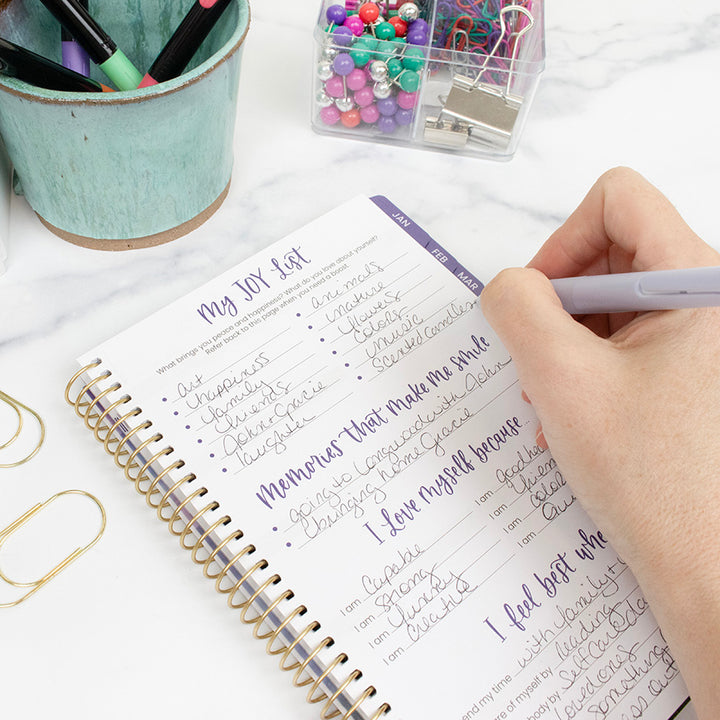 JAN
FEB
MAR
My JOY List
What brings you peace and happiness? What do you love about yourself?
Refer back to this page when you need a boost.
• Art
• happiness
• family
• friends
• John + Gracie
• laughter
• animals
• nature
• flowers
• colors
• music
• scented candles
Memories that make me smile
• going to Longwood with John
• bringing home Gracie
I love myself because...
I am capable
I am strong
I am funny
I am creative
I am good
I am
I am color
I am
I feel best when
end my time with family +
re of myself by leading
body by self care
loved ones
something